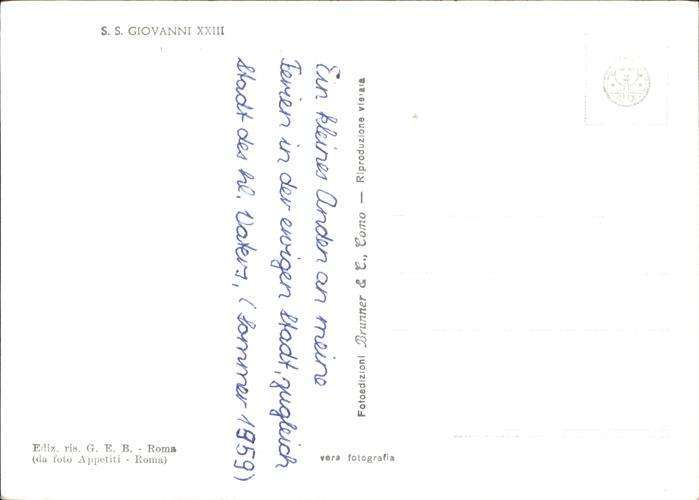 S. S. GIOVANNI XXIII
Ein kleines Anden an meine
Ferien in der ewigen Stadt, zugleich
Stadt des hl. Vaters, (Sommer 1959)
Fotoedizioni Brunner & C., Como — Riproduzione vietata
Ediz. ris. G. E. B. - Roma
(da foto Appetiti - Roma)
vera fotografia